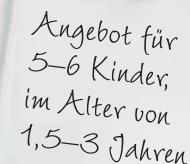 Angebot für
5–6 Kinder,
im Alter von
1,5–3 Jahren